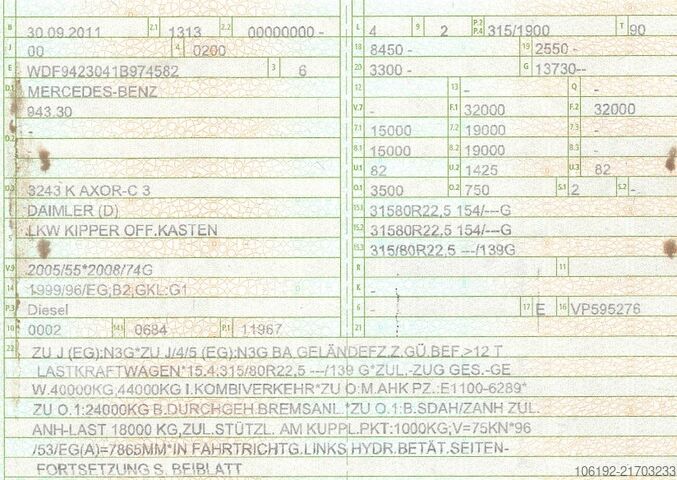 B 30.09.2011 2.1 1313 2.2 00000000 -
J 00 4 0200
E WDF9423041B974582 3 6
D.1 MERCEDES-BENZ
943.30
D.2 -
D.3 3243 K AXOR-C 3
DAIMLER (D)
LKW KIPPER OFF.KASTEN
5
V.9 2005/55*2008/74G
14 1999/96/EG;B2;GKL:G1
P.3 Diesel
10 0002 14.1 0684 P.1 11967
L 4 9 2 P.2 P.4 315/1900 T 90
18 8450 - 19 2550 -
20 3300 - G 13730--
12 - 13 - Q -
V.7 - F.1 32000 F.2 32000
7.1 15000 7.2 19000 7.3 -
8.1 15000 8.2 19000 8.3 -
U.1 82 U.2 1425 U.3 82
O.1 3500 O.2 750 S.1 2 S.2 -
15.1 31580R22,5 154/---G
15.2 31580R22,5 154/---G
15.3 315/80R22,5 ---/139G
R - 11 -
K -
6 - 17 E 16 VP595276
21
22 ZU J (EG):N3G*ZU J/4/5 (EG):N3G BA GELÄNDEFZ.Z.GÜ.BEF.>12 T
LASTKRAFTWAGEN*15.4:315/80R22,5 ---/139 G*ZUL.-ZUG GES.-GE
W.40000KG,44000KG I.KOMBIVERKEHR*ZU O:M.AHK PZ.:E1100-6289*
ZU O.1:24000KG B.DURCHGEH.BREMSANL.*ZU O.1:B.SDAH/ZANH ZUL.
ANH-LAST 18000 KG,ZUL.STÜTZL. AM KUPPL.PKT:1000KG;V=75KN*96
/53/EG(A)=7865MM*IN FAHRTRICHTG.LINKS HYDR.BETÄT.SEITEN-
FORTSETZUNG S. BEIBLATT
106192-21703233